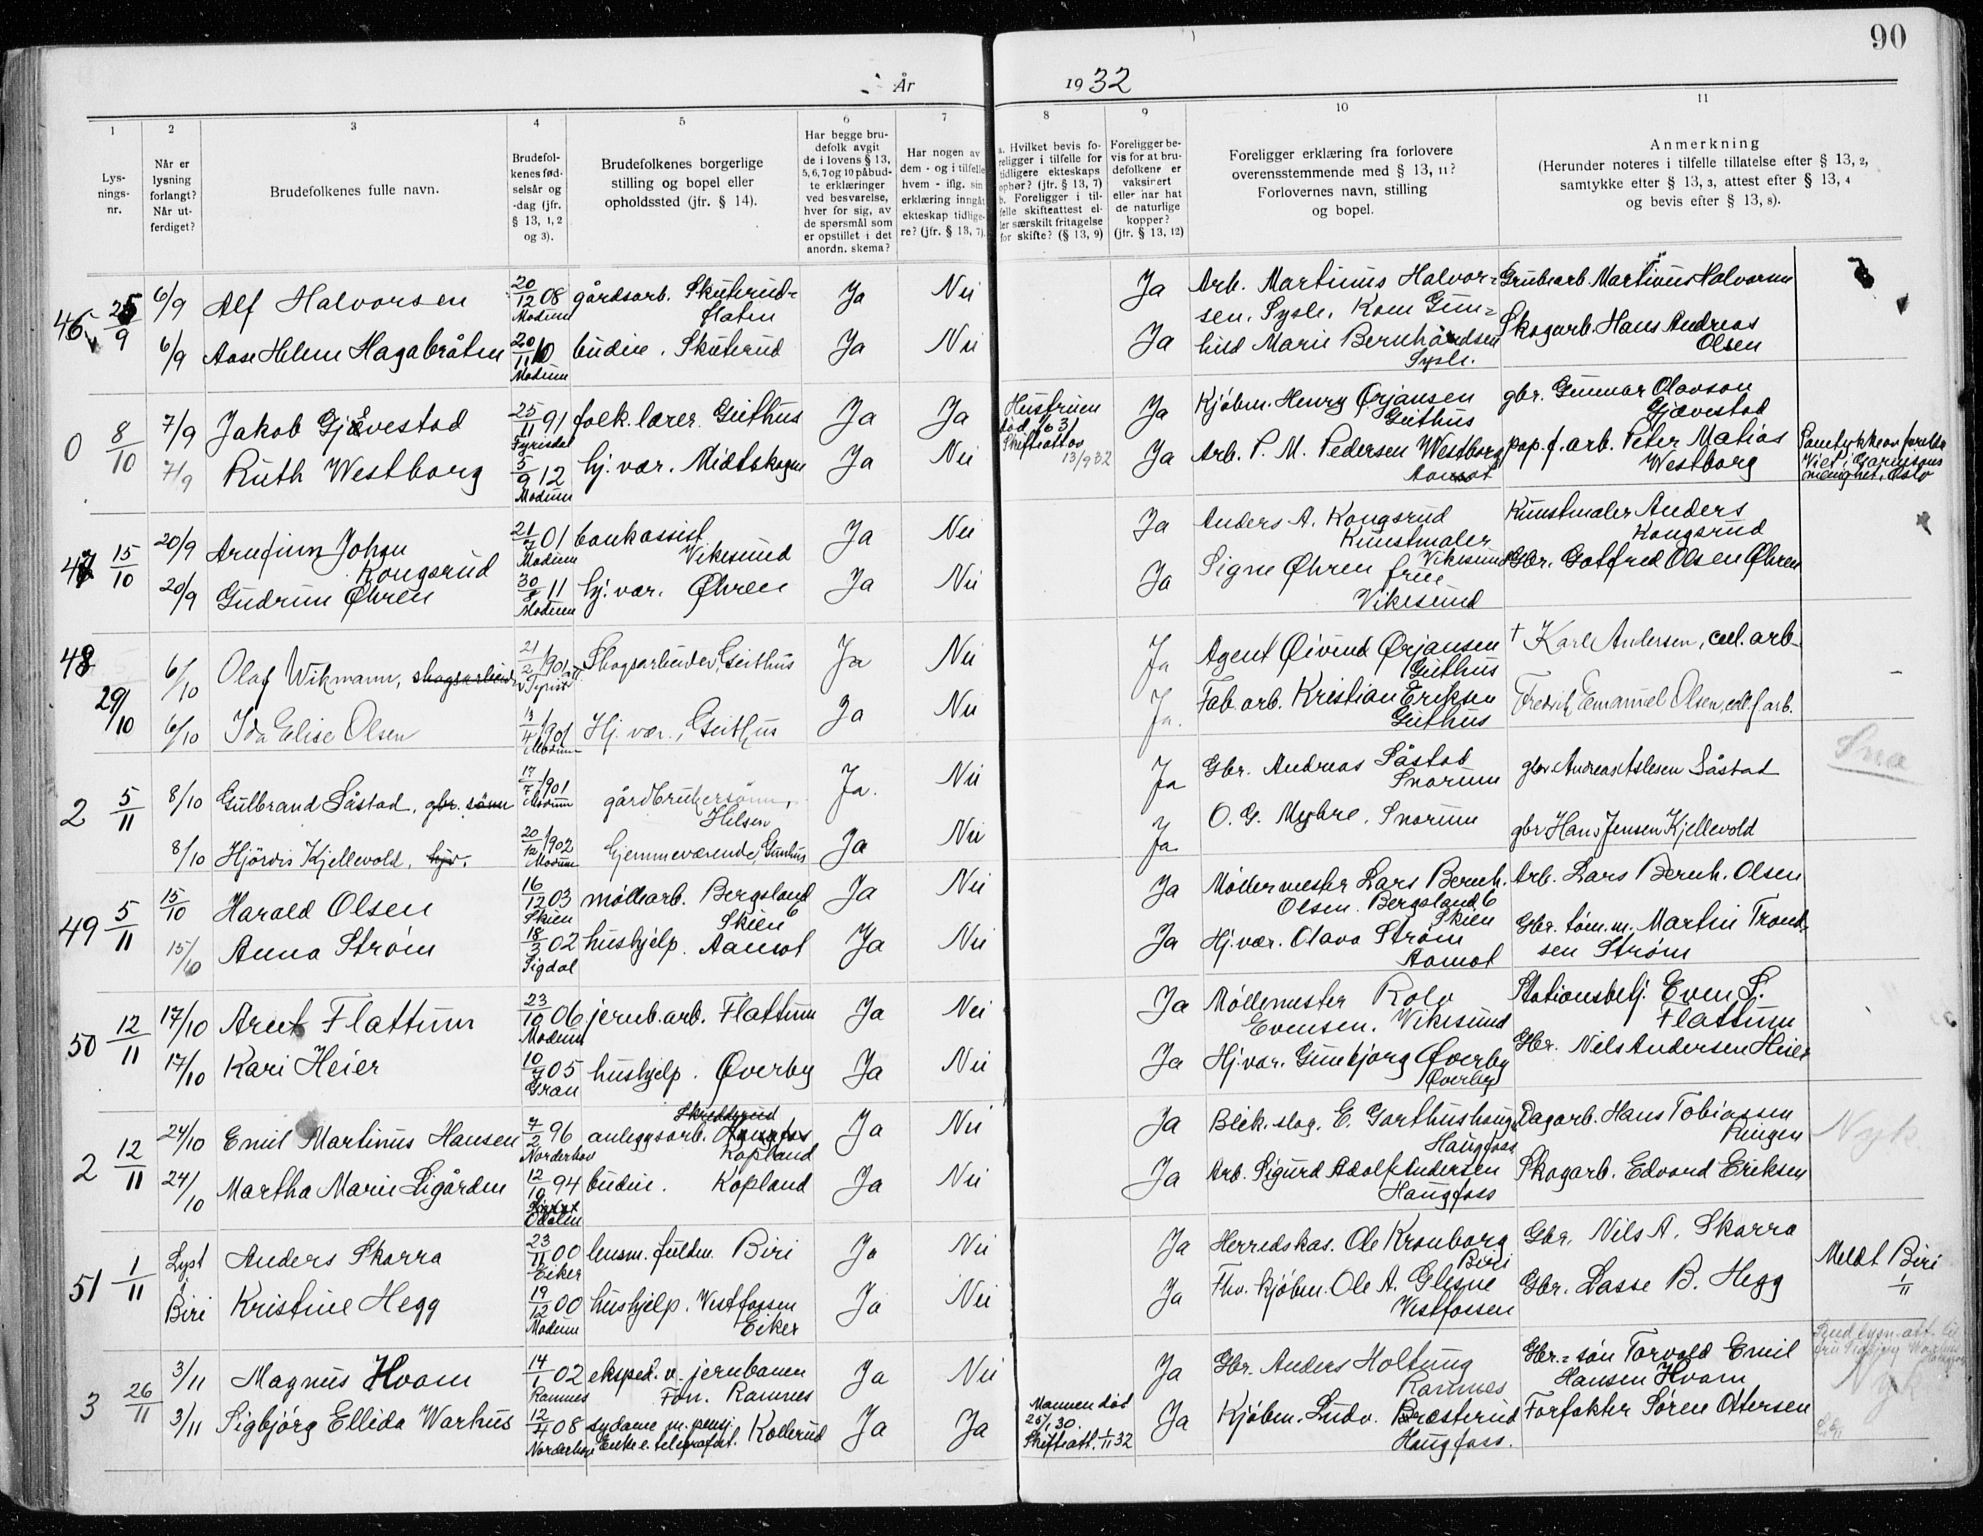 90
År 1932
1 2 3 4 5 6 7 8 9 10 11
Lys-
nings-
nr.
Når er
lysning
forlangt?
Når ut-
ferdiget?
Brudefolkenes fulle navn.
Brudefol-
kenes fød-
selsår og
-dag (jfr.
§ 13, 1, 2
og 3).
Brudefolkenes borgerlige
stilling og bopel eller
opholdssted (jfr. § 14).
Har begge bru-
defolk avgit
de i lovens § 13,
5, 6, 7 og 10 påbud-
te erklæringer
ved besvarelse,
hver for sig, av
de spørsmål som
er opstillet i det
anordn. skema?
Har nogen av
dem - og i tilfelle
hvem - iflg. sin
erklæring inngått
ekteskap tidlige-
re? (jfr. § 13, 7).
a. Hvilket bevis fo-
religger i tilfelle for
tidligere ekteskaps
ophør? (jfr. § 13, 7)
b. Foreligger i til-
felle skifteattest el-
ler særskilt fritagelse
for skifte? (§ 13, 9)
Foreligger be-
vis for at bru-
defolkene er
vaksinert
eller har hat
de naturlige
kopper?
(jfr. § 13, 12)
Foreligger erklæring fra forlovere
overensstemmende med § 13, 11?
Forlovernes navn, stilling
og bopel.
Anmerkning
(Herunder noteres i tilfelle tillatelse efter § 13, 2,
samtykke efter § 13, 3, attest efter § 13, 4
og bevis efter § 13, 8).
46 25/9 6/9 Alf Halvorsen 20/12 08 Modum gårdsarb. Skuterud-
flaten Ja Nei Ja Arb. Martinus Halvor-
sen. Sysle. Kom Gun-
Grubearb. Martinus Halvorsen
6/9 Aase Helene Hagabråten 20/11 10 Modum budeie. Skuterud Ja Nei Ja hild Marie Bernhardsen
Sysle.
Skogarb. Hans Andreas
Olsen
0 8/10 7/9 Jakob Gjævestad 25/11 91 Fyrisdal folk.lærer. Geithus Ja Ja Hustruen
død
Skifteatt. av
13/9 32
Ja Kjøbm. Henry Ørjansen
Geithus
gbr. Gunnar Olavson
Gjævestad
7/9 Ruth Westborg 5/9 12 Modum hj. vær. Midtskogen Ja Nei Ja Arb. P. M. Pedersen Westborg
Aamot
pap.f.arb. Peter Matias
Westborg
Samtykke av foreldre
Viet i Garnisons
menighet, Oslo
47 15/10 20/9 Arnfinn Johan
Kongsrud 21/7 01 Modum bankassist
Vikesund Ja Nei Ja Anders A. Kongsrud
Kunstmaler
Vikesund
Kunstmaler Anders
Kongsrud
20/9 Gudrun Øhren 30/8 11 Modum hj. vær. Øhren Ja Nei Ja Signe Øhren frue
Vikesund
Gbr. Gotfred Olsen Øhren
48 29/10 6/10 Olaf Wikmann, skogsarbeider 21/2 1901 Skogsarbeider, Geithus Ja Nei Ja Agent Øivind Ørjansen
Geithus
† Karl Andersen, cel. arb.
6/10 Ida Elise Olsen 13/4 1901 Modum Hj. vær., Geithus Ja Nei Ja. Fab. arb. Kristian Eriksen
Geithus
Fredrik Emanuel Olsen, cel.f.arb.
2 5/11 8/10 Gulbrand Såstad, gbr. sønn 17/7 1901 Modum gårdbrukersønn,
Hilsen Ja. Nei Ja Gbr. Andreas Såstad
Snarum
gbr Andreas Aslesen Såstad
Sna
8/10 Hjördis Kjellevold, hjv. 20/12 1902 Modum hjemmeværende, Ja Nei Ja O. G. Myhre. Snarum
gbr Hans Jensen Kjellevold
49 5/11 15/10 Harald Olsen 16/12 03 Skien møllearb. Bergsland 6
Skien Ja Nei Ja Møllermester Lars Bernh.
Olsen. Bergsland 6
Skien
Arb. Lars Bernh. Olsen
15/10 Anna Strøm 18/3 02 Sigdal hushjelp. Aamot Ja Nei Ja Hj. vær. Olava Strøm
Aamot
Gbr. tøm.m. Martin Trond-
sen Strøm
50 12/11 17/10 Arent Flattum 23/10 06 Modum jernb.arb. Flattum Ja Nei Ja Møllemester Rolv
Evensen. Vikesund
Stationsbetj. Even S.
Flattum
17/10 Kari Heier 10/7 05 Gran hushjelp. Øverby Ja Nei Ja Hj.vær. Gunbjørg Øverby
Øverby
Gbr. Nils Andersen Heier
2 12/11 24/10 Emil Martinus Hansen 7/2 96 Norderhov anleggsarb. Haugfoss
Kopland Ja Nei Ja Blik.slag. E. Garthushaug
Haugfoss
Dagarb. Hans Tobiassen
Ringen
Nyk
24/10 Martha Marie Ligården 12/10 94 Odalen budeie. Kopland Ja Nei Ja Arb. Sigurd Adolf Andersen
Haugfoss
Skogarb. Edvard Eriksen
51 1/11 Lyst
i
Biri
Anders Skarra 23/11 00 Eiker lensm. fuldm. Biri Ja Nei Ja Herredskas. Ole Kronborg
Biri
Gbr. Nils A. Skarra
Meldt Biri
1/11
Kristine Hegg 19/12 00 Modum hushjelp. Vestfossen
Eiker Ja Nei Ja Fhv. kjøbm. Ole A. Glesne
Vestfossen
Gbr. Lasse B. Hegg
3 26/11 3/11 Magnus Hvam 14/1 02 Ramnes eksped. v. jernbanen
Fon. Ramnes Ja Nei Ja Gbr. Anders Holtung
Ramnes
Gbr.-søn Torvald Emil
Hansen Hvam
Nyk
3/11 Sigbjörg Ellida Warhus 12/4 08 Norderhov sydame m. pensj.
Enke e. telegrafist. Kollerud Ja Ja Mannen død
25/ 30.
Skifteatt. 1/11 32
Ja Kjøbm. Ludv. Bræsterud
Haugfoss.
Forfakter Søren Ottersen